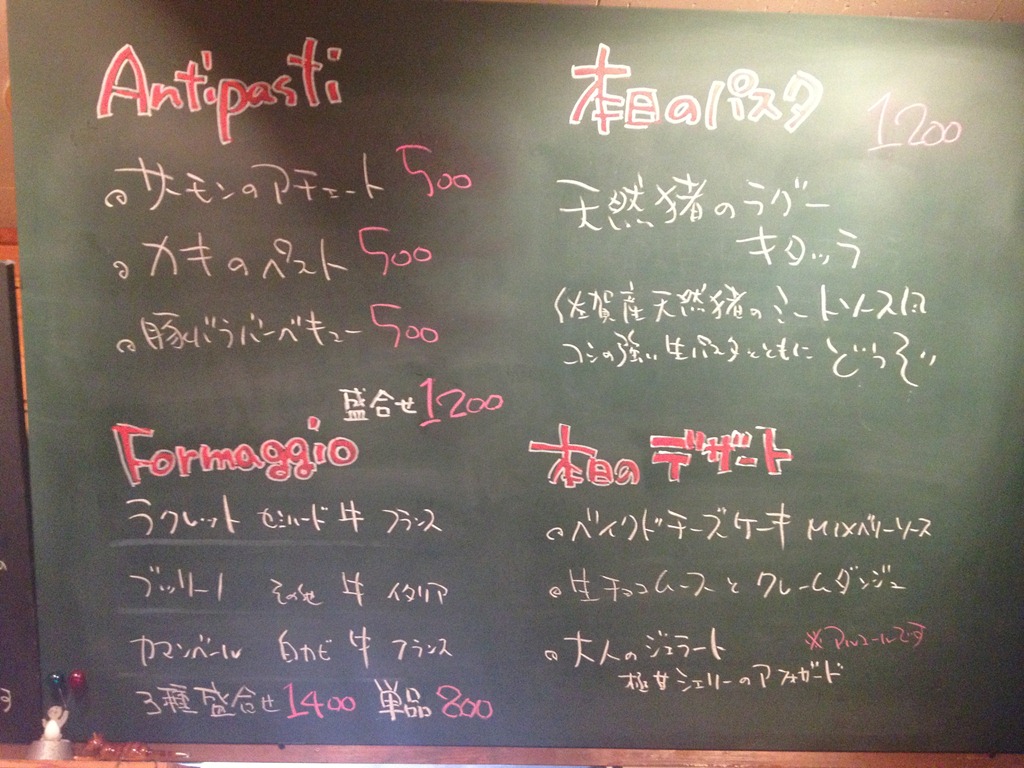 Antipasti
サーモンのアチェート 500
カキのペースト 500
豚バラバーベキュー 500
盛合せ 1200
Formaggio
ラクレット セミハード 牛 フランス
ブッリーノ その他 牛 イタリア
カマンベール 白カビ 牛 フランス
3種盛合せ 1400 単品 800
本日のパスタ 1200
天然猪のラグー
キタッラ
佐賀産天然猪のミートソースは
コシの強い生パスタとともにどうぞ
本日のデザート
ベイクドチーズケーキ MIXベリーソース
生チョコムースとクレームダンジュ
大人のジェラート ※アルコールです
極甘シェリーのアフォガード